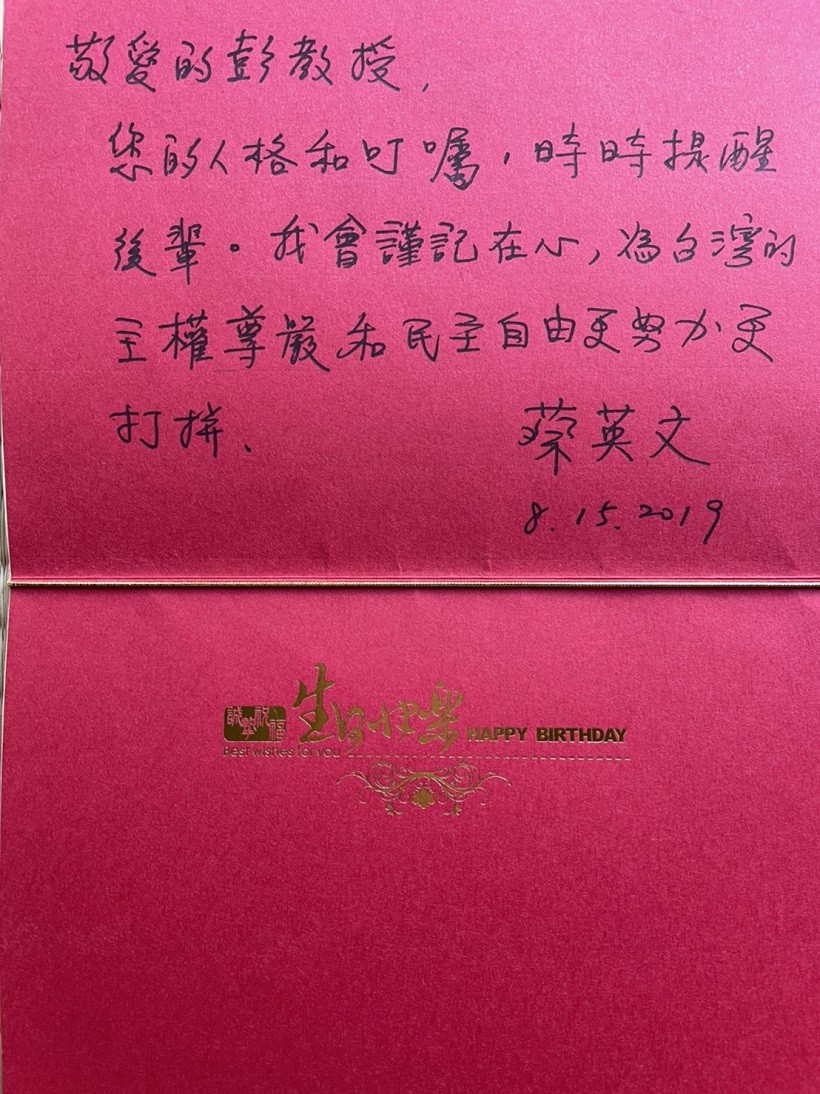 敬愛的彭教授,
您的人格和叮嚀，時時提醒
後輩。我會謹記在心，為台灣的
主權尊嚴和民主自由更努力更
打拼、
蔡英文
8.15.2019
誠摯祝福
生日快樂 HAPPY BIRTHDAY
Best wishes for you